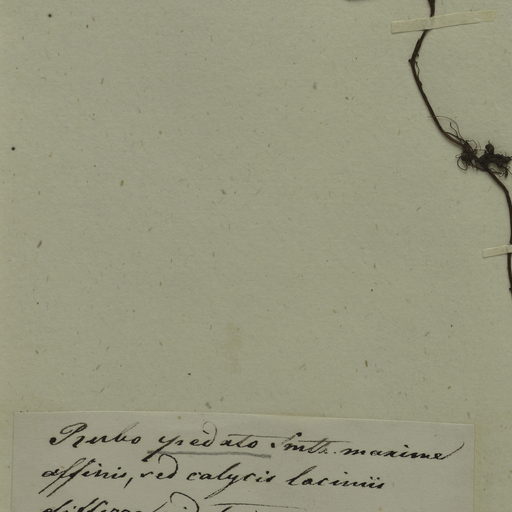 Rubo pedato Smth. maxime
affinis, sed calycis laciniis